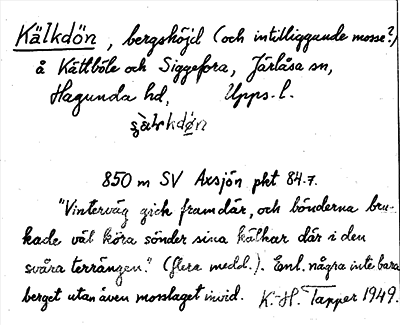 Kälkdön, bergshöjd (och intilliggande mosse?)
å Kättböle och Siggefora, Järlåsa sn,
Hagunda hd, Upps. l.
850 m SV Axsjön pkt 84.7.
"Vinterväg gick fram där, och bönderna bru-
kade väl köra sönder sina kälkar där i den
svåra terrängen." (flera medd.). Enl. några inte bara
berget utan även mosslaget invid. K.-H. Tapper 1949.